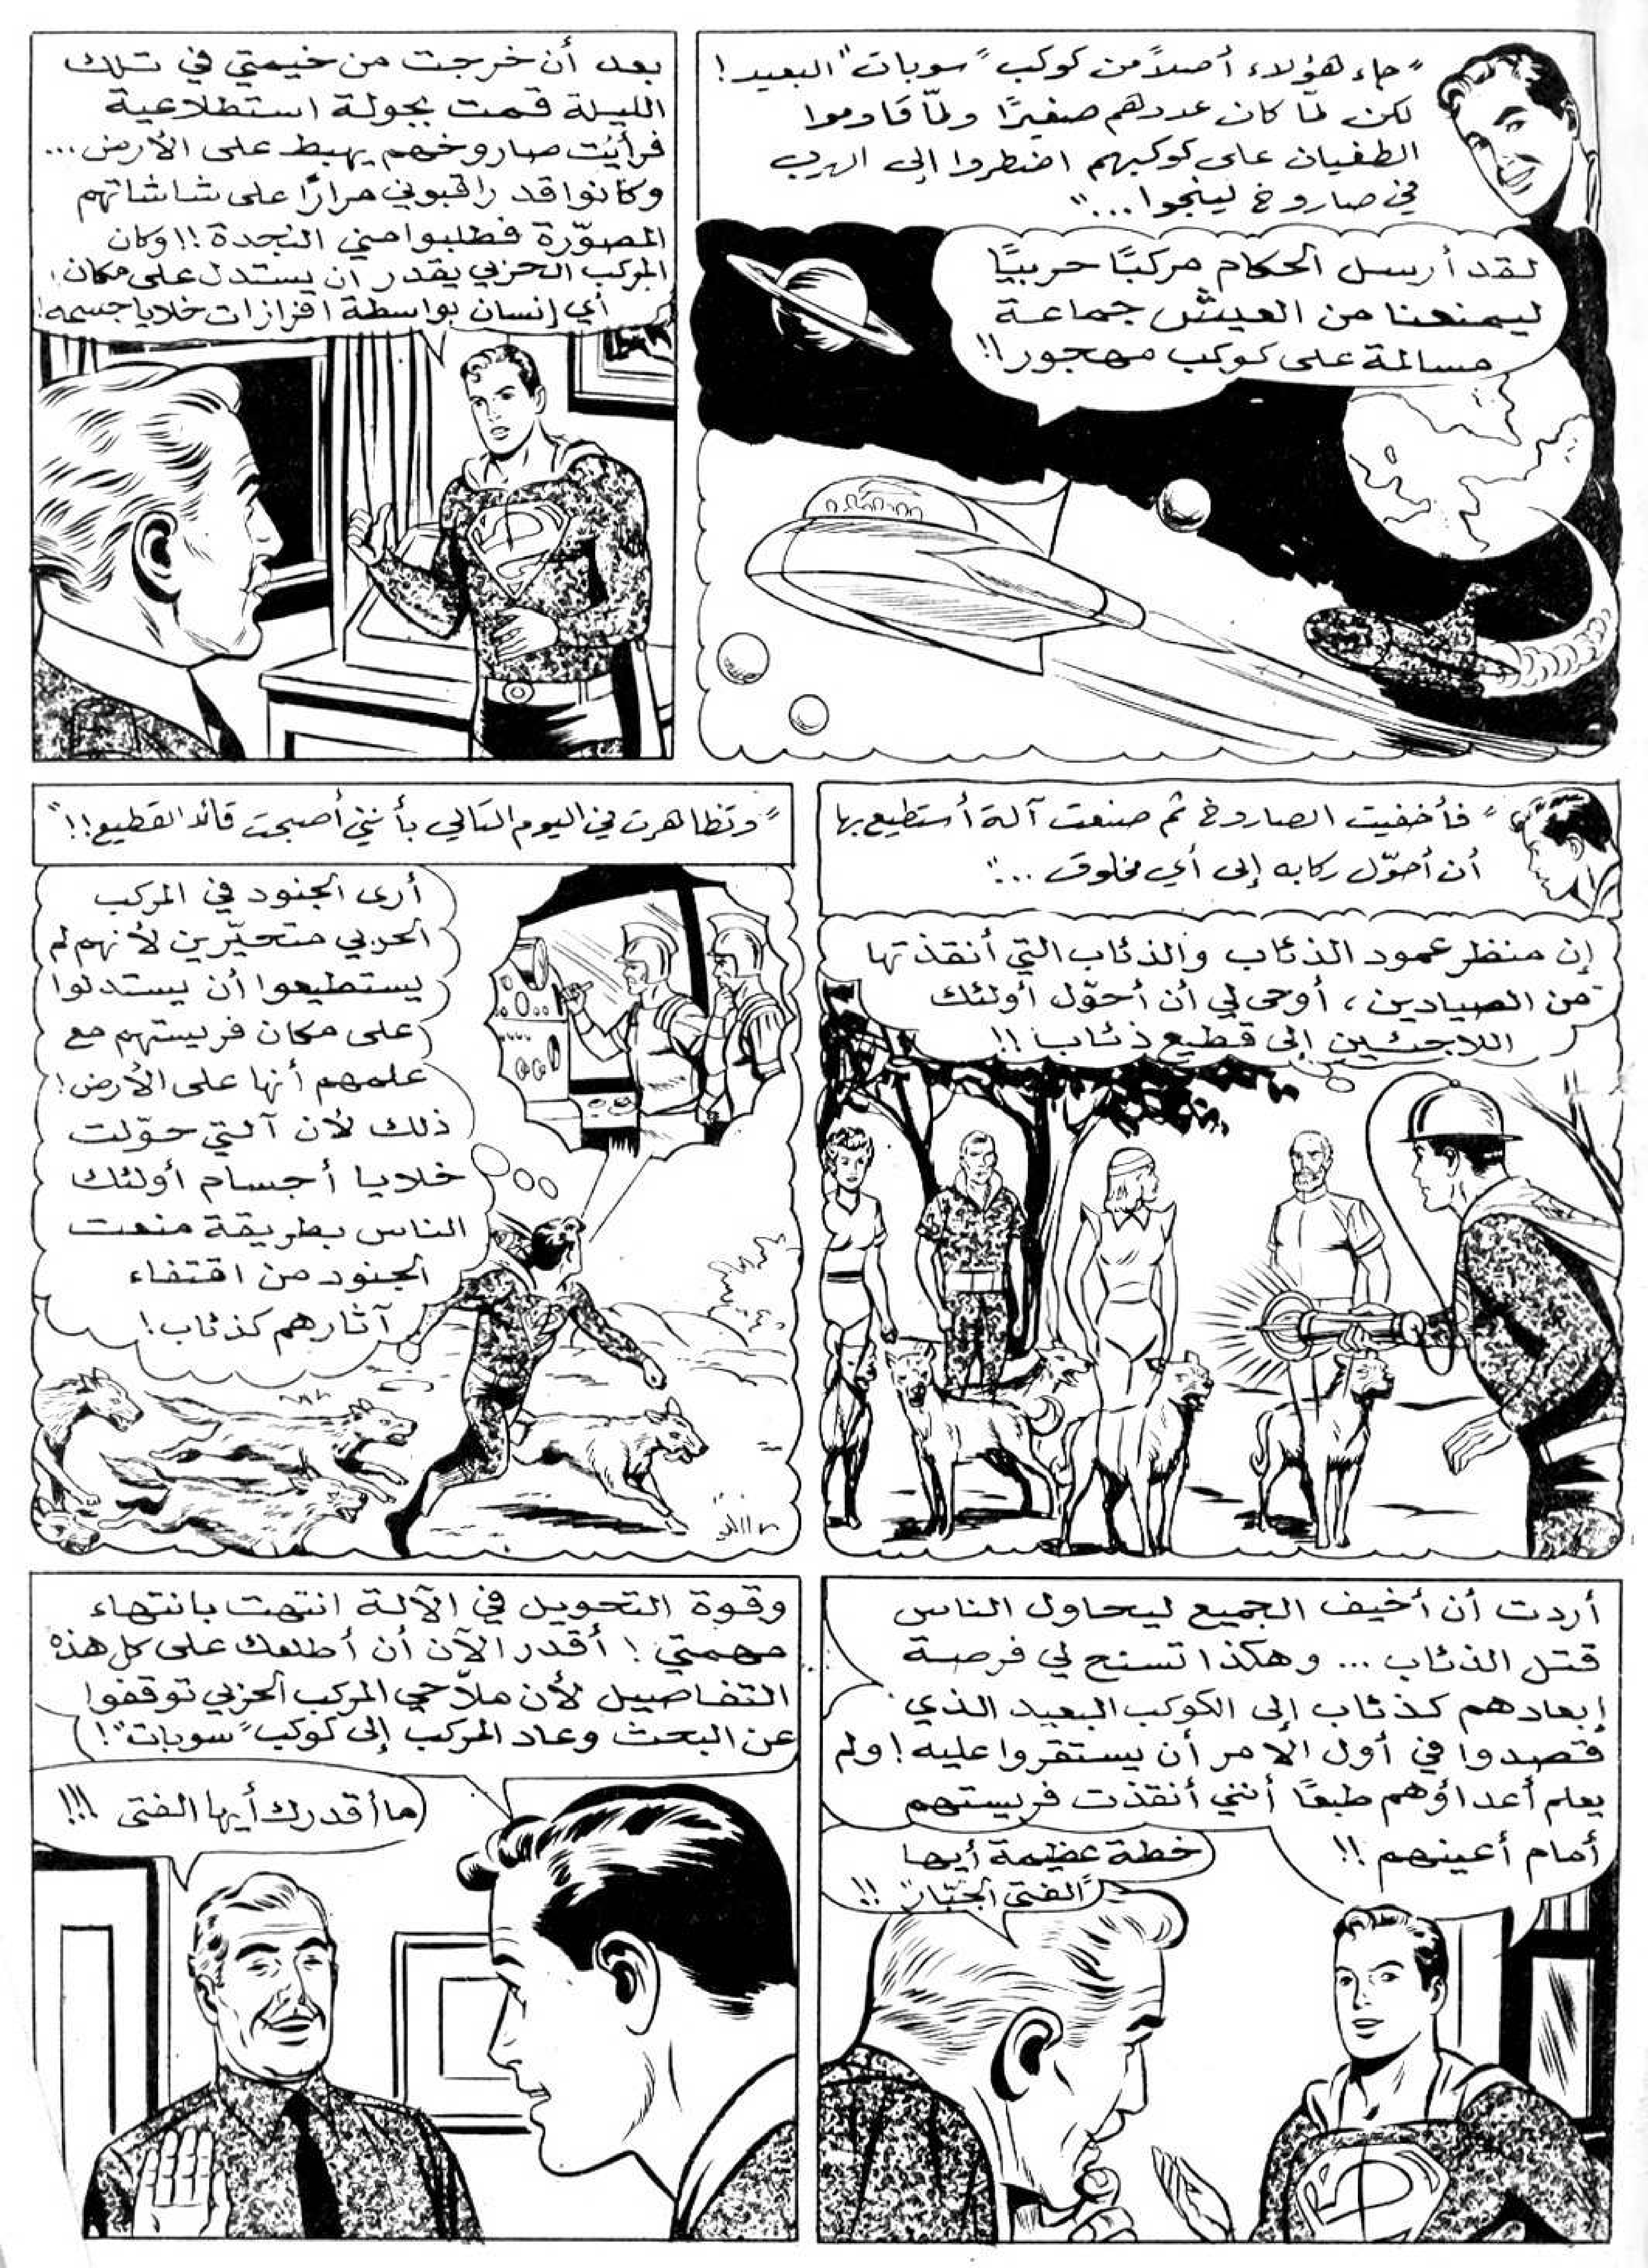 "جاء هؤلاء أصلاً من كوكب "سوبات" البعيد!
لكن لمّا كان عددهم صغيرًا ولمّا قاوموا
الطغيان على كوكبهم اضطروا إلى الهرب
في صاروخ لينجوا..."
لقد أرسل الحكام مركبًا حربيًا
ليمنعنا من العيش جماعة
مسالمة على كوكب مهجور!!
بعد أن خرجت من خيمتي في تلك
الليلة قمت بجولة استطلاعية
فرأيت صاروخهم يهبط على الأرض...
وكانوا قد راقبوني مرارًا على شاشاتهم
المصوّرة فطلبوا مني النجدة!! وكان
المركب الحربي يقدر ان يستدل على مكان
أي إنسان بواسطة افرازات خلايا جسمه!
"فأخفيت الصاروخ ثم صنعت آلة أستطيع بها
أن أحوّل ركابه إلى أي مخلوق ..."
إن منظر عمود الذئاب والذئاب التي أنقذتها
من الصيادين، أوحى لي أن أحوّل أولئك
اللاجئين إلى قطيع ذئاب!!
"وتظاهرت في اليوم التالي بأنني أصبحت قائد القطيع!!"
أرى الجنود في المركب
الحربي متحيّرين لأنهم لم
يستطيعوا أن يستدلوا
على مكان فريستهم مع
علمهم أنها على الأرض!
ذلك لأن آلتي حوّلت
خلايا أجسام أولئك
الناس بطريقة منعت
الجنود من اقتفاء
آثارهم كذئاب!
أردت أن أخيف الجميع ليحاول الناس
قتل الذئاب ... وهكذا تسنح لي فرصة
إبعادهم كذئاب إلى الكوكب البعيد الذي
قصدوا في أول الامر أن يستقروا عليه! ولم
يعلم أعداؤهم طبعًا أنني أنقذت فريستهم
أمام أعينهم!!
خطة عظيمة أيها
"الفتى الجبّار"!!
وقوة التحويل في الآلة انتهت بانتهاء
مهمتي! أقدر الآن أن أطلعك على كل هذه
التفاصيل لأن ملاّحي المركب الحربي توقفوا
عن البحث وعاد المركب إلى كوكب "سوبات"!
ما أقدرك أيها الفتى!!!